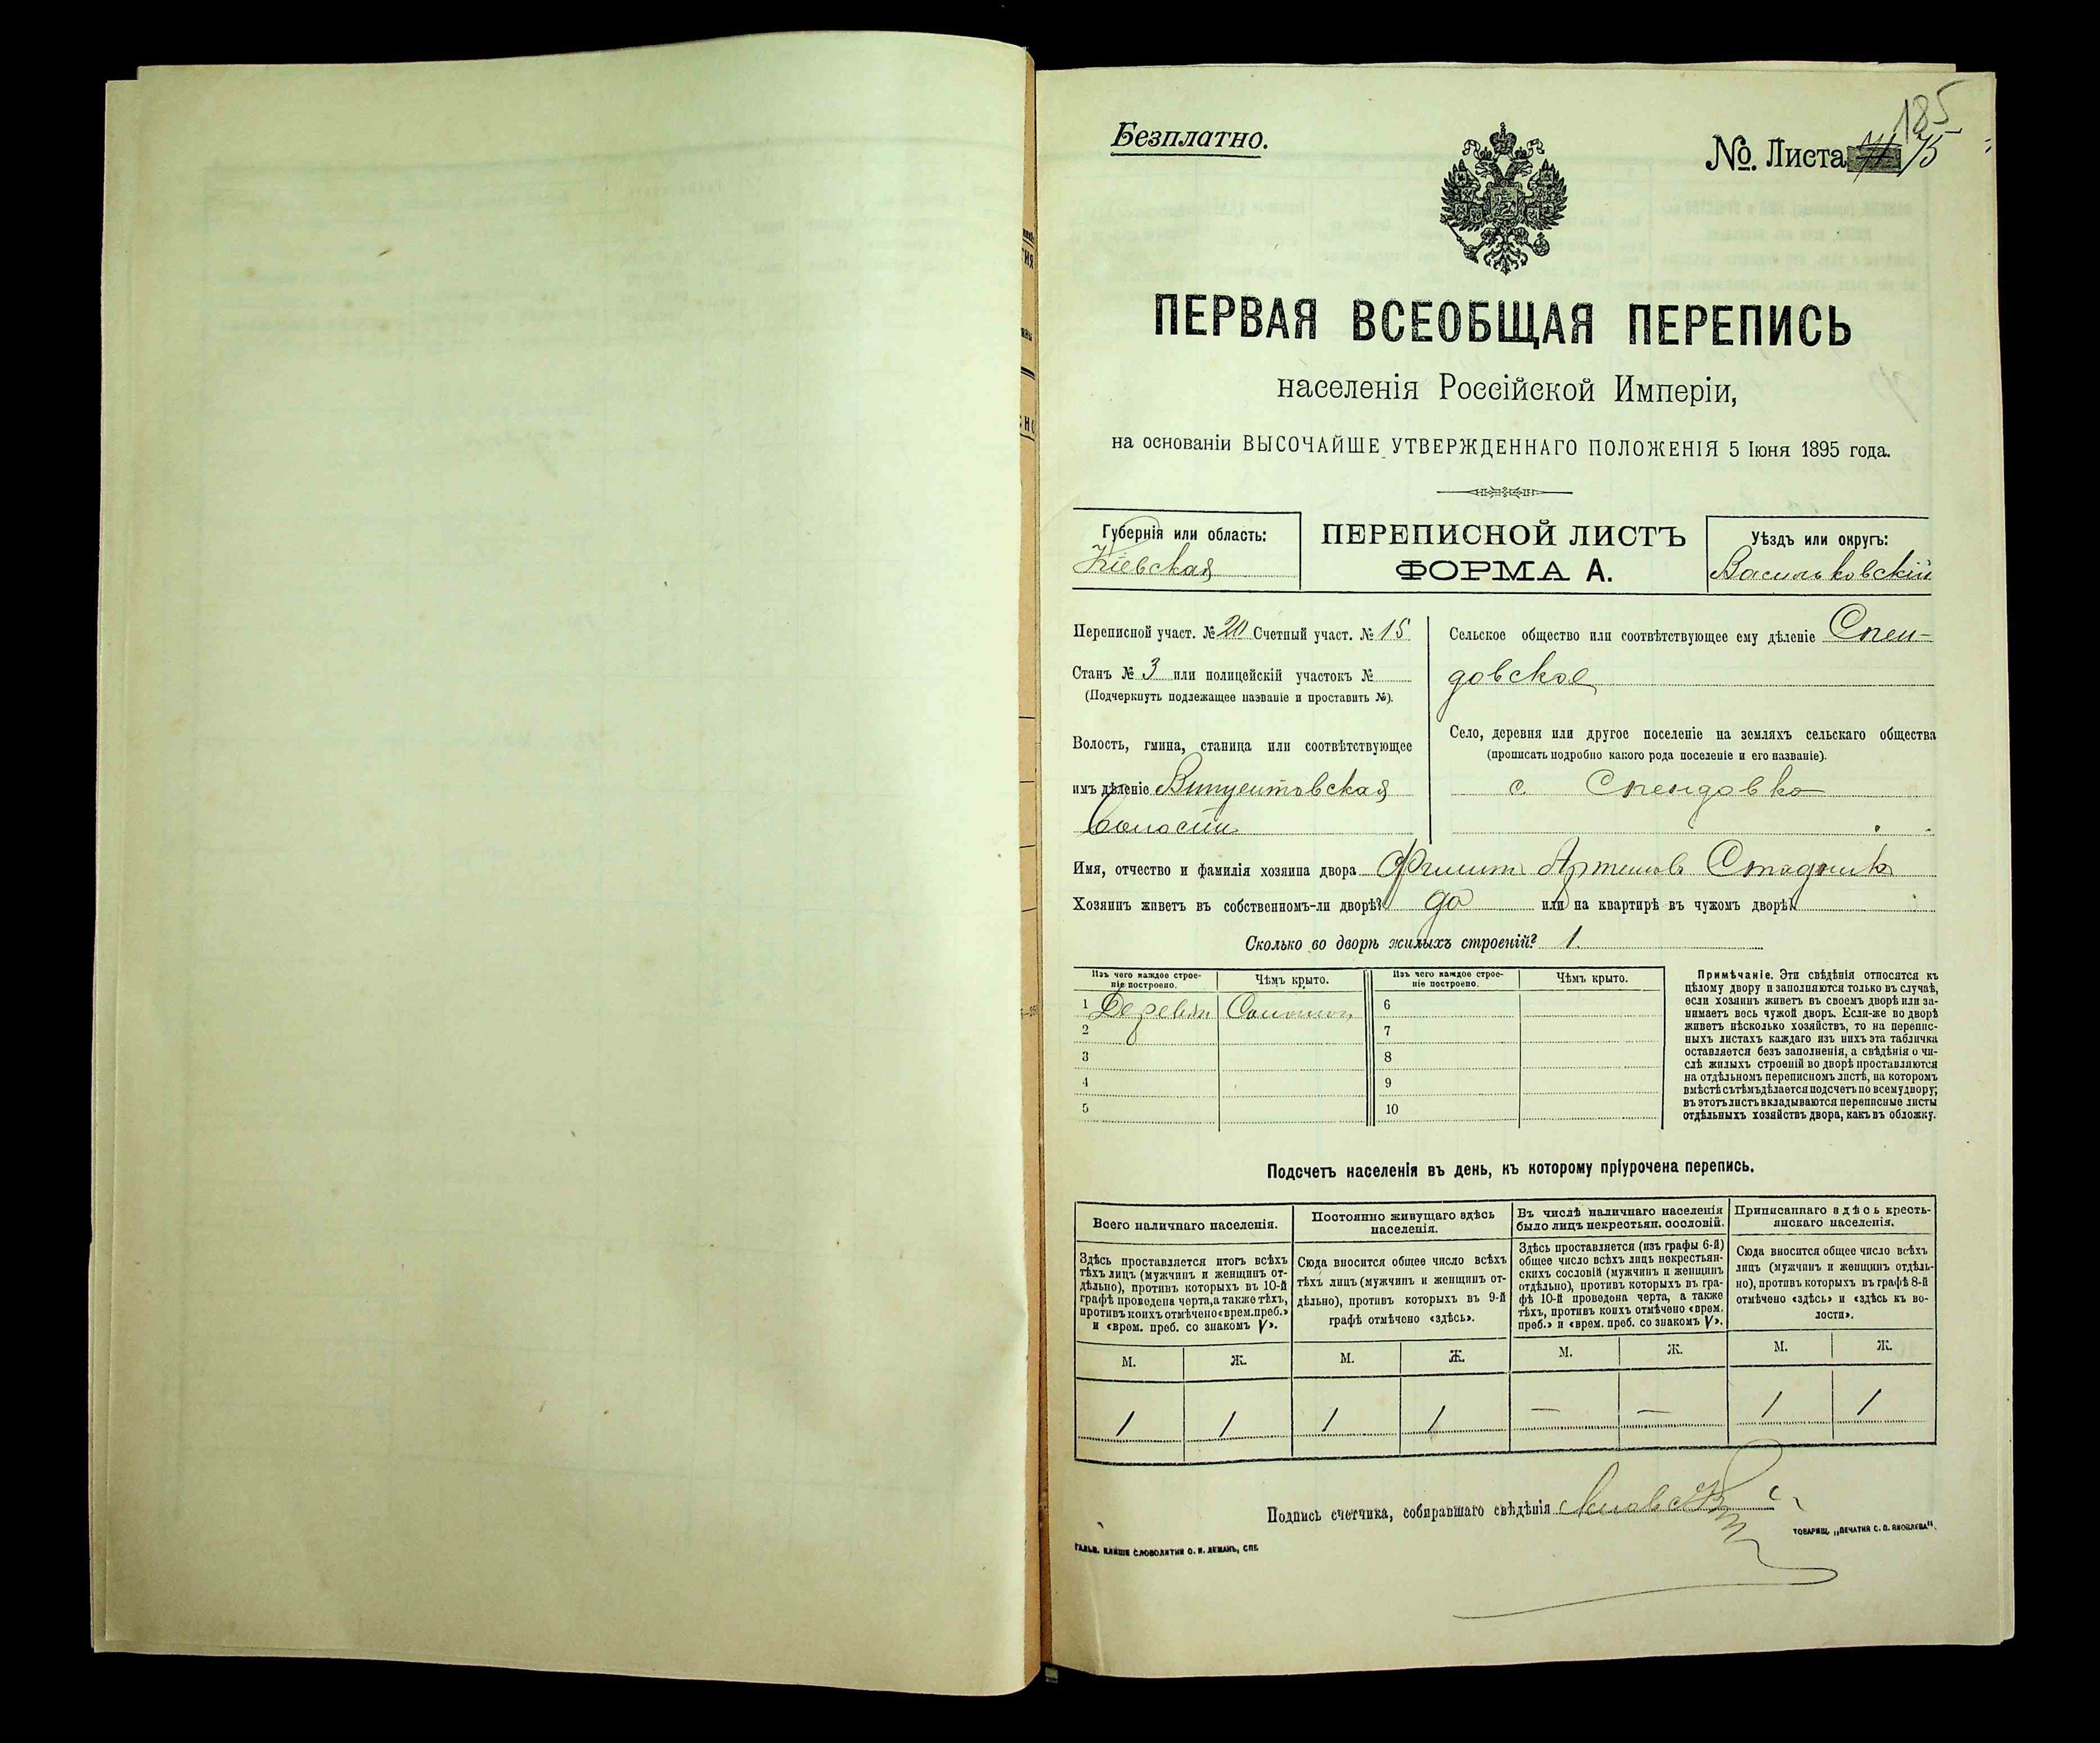 185
Безплатно.
№. Листа 75
ПЕРВАЯ ВСЕОБЩАЯ ПЕРЕПИСЬ
населенія Россійской Имперіи,
на основаніи ВЫСОЧАЙШЕ УТВЕРЖДЕННАГО ПОЛОЖЕНІЯ 5 Іюня 1895 года.
Губернія или область:
Кіевская
ПЕРЕПИСНОЙ ЛИСТЪ
ФОРМА А.
Уѣздъ или округъ:
Васильковскій
Переписной участ. № 20 Счетный участ. № 15
Станъ № 3 или полицейскій участокъ №
(Подчеркнуть подлежащее названіе и проставить №).
Волость, гмина, станица или соотвѣтствующее
имъ дѣленіе Винцентовская
волости
Сельское общество или соотвѣтствующее ему дѣленіе Спен-
довское
Село, деревня или другое поселеніе на земляхъ сельскаго общества
(прописать подробно какого рода поселеніе и его названіе).
с. Спендовка
Имя, отчество и фамилія хозяина двора Филипп Артемов Стадник
Хозяинъ живетъ въ собственномъ-ли дворѣ? да или на квартирѣ въ чужомъ дворѣ?
Сколько во дворѣ жилыхъ строеній? 1
Изъ чего каждое строе-
ніе построено.
Чѣмъ крыто.
Изъ чего каждое строе-
ніе построено.
Чѣмъ крыто.
1 Деревян Солошон 6
2 7
3 8
4 9
5 10
Примѣчаніе. Эти свѣдѣнія относятся къ
цѣлому двору и заполняются только въ случаѣ,
если хозяинъ живетъ въ своемъ дворѣ или за-
нимаетъ весь чужой дворъ. Если-же во дворѣ
живетъ нѣсколько хозяйствъ, то на перепис-
ныхъ листахъ каждаго изъ нихъ эта табличка
оставляется безъ заполненія, а свѣдѣнія о чи-
слѣ жилыхъ строеній во дворѣ проставляются
на отдѣльномъ переписномъ листѣ, на которомъ
вмѣстѣ съ тѣмъ дѣлается подсчетъ по всему двору;
въ этотъ листъ вкладываются переписные листы
отдѣльныхъ хозяйствъ двора, какъ въ обложку.
Подсчетъ населенія въ день, къ которому пріурочена перепись.
Всего наличнаго населенія.
Здѣсь проставляется итогъ всѣхъ
тѣхъ лицъ (мужчинъ и женщинъ от-
дѣльно), противъ которыхъ въ 10-й
графѣ проведена черта, а также тѣхъ,
противъ коихъ отмѣчено «врем. преб.»
и «врем. преб. со знакомъ V».
М. Ж.
1 1
Постоянно живущаго здѣсь
населенія.
Сюда вносится общее число всѣхъ
тѣхъ лицъ (мужчинъ и женщинъ от-
дѣльно), противъ которыхъ въ 9-й
графѣ отмѣчено «здѣсь».
М. Ж.
1 1
Въ числѣ наличнаго населенія
было лицъ некрестьян. сословій.
Здѣсь проставляется (изъ графы 6-й)
общее число всѣхъ лицъ некрестьян-
скихъ сословій (мужчинъ и женщинъ
отдѣльно), противъ которыхъ въ гра-
фѣ 10-й проведена черта, а также
тѣхъ, противъ коихъ отмѣчено «врем.
преб.» и «врем. преб. со знакомъ V».
М. Ж.
— —
Приписаннаго здѣсь кресть-
янскаго населенія.
Сюда вносится общее число всѣхъ
лицъ (мужчинъ и женщинъ отдѣль-
но), противъ которыхъ въ графѣ 8-й
отмѣчено «здѣсь» и «здѣсь къ во-
лости».
М. Ж.
1 1
Подпись счетчика, собиравшаго свѣдѣнія
ГАЛЬВ. КЛИШЕ СЛОВОЛИТНИ О. И. ЛЕМАНЪ, СПБ.
ТОВАРИЩ. „ПЕЧАТНЯ С. П. ЯКОВЛЕВА".